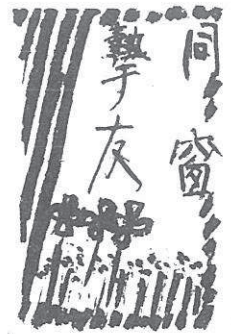 同窗
摯友